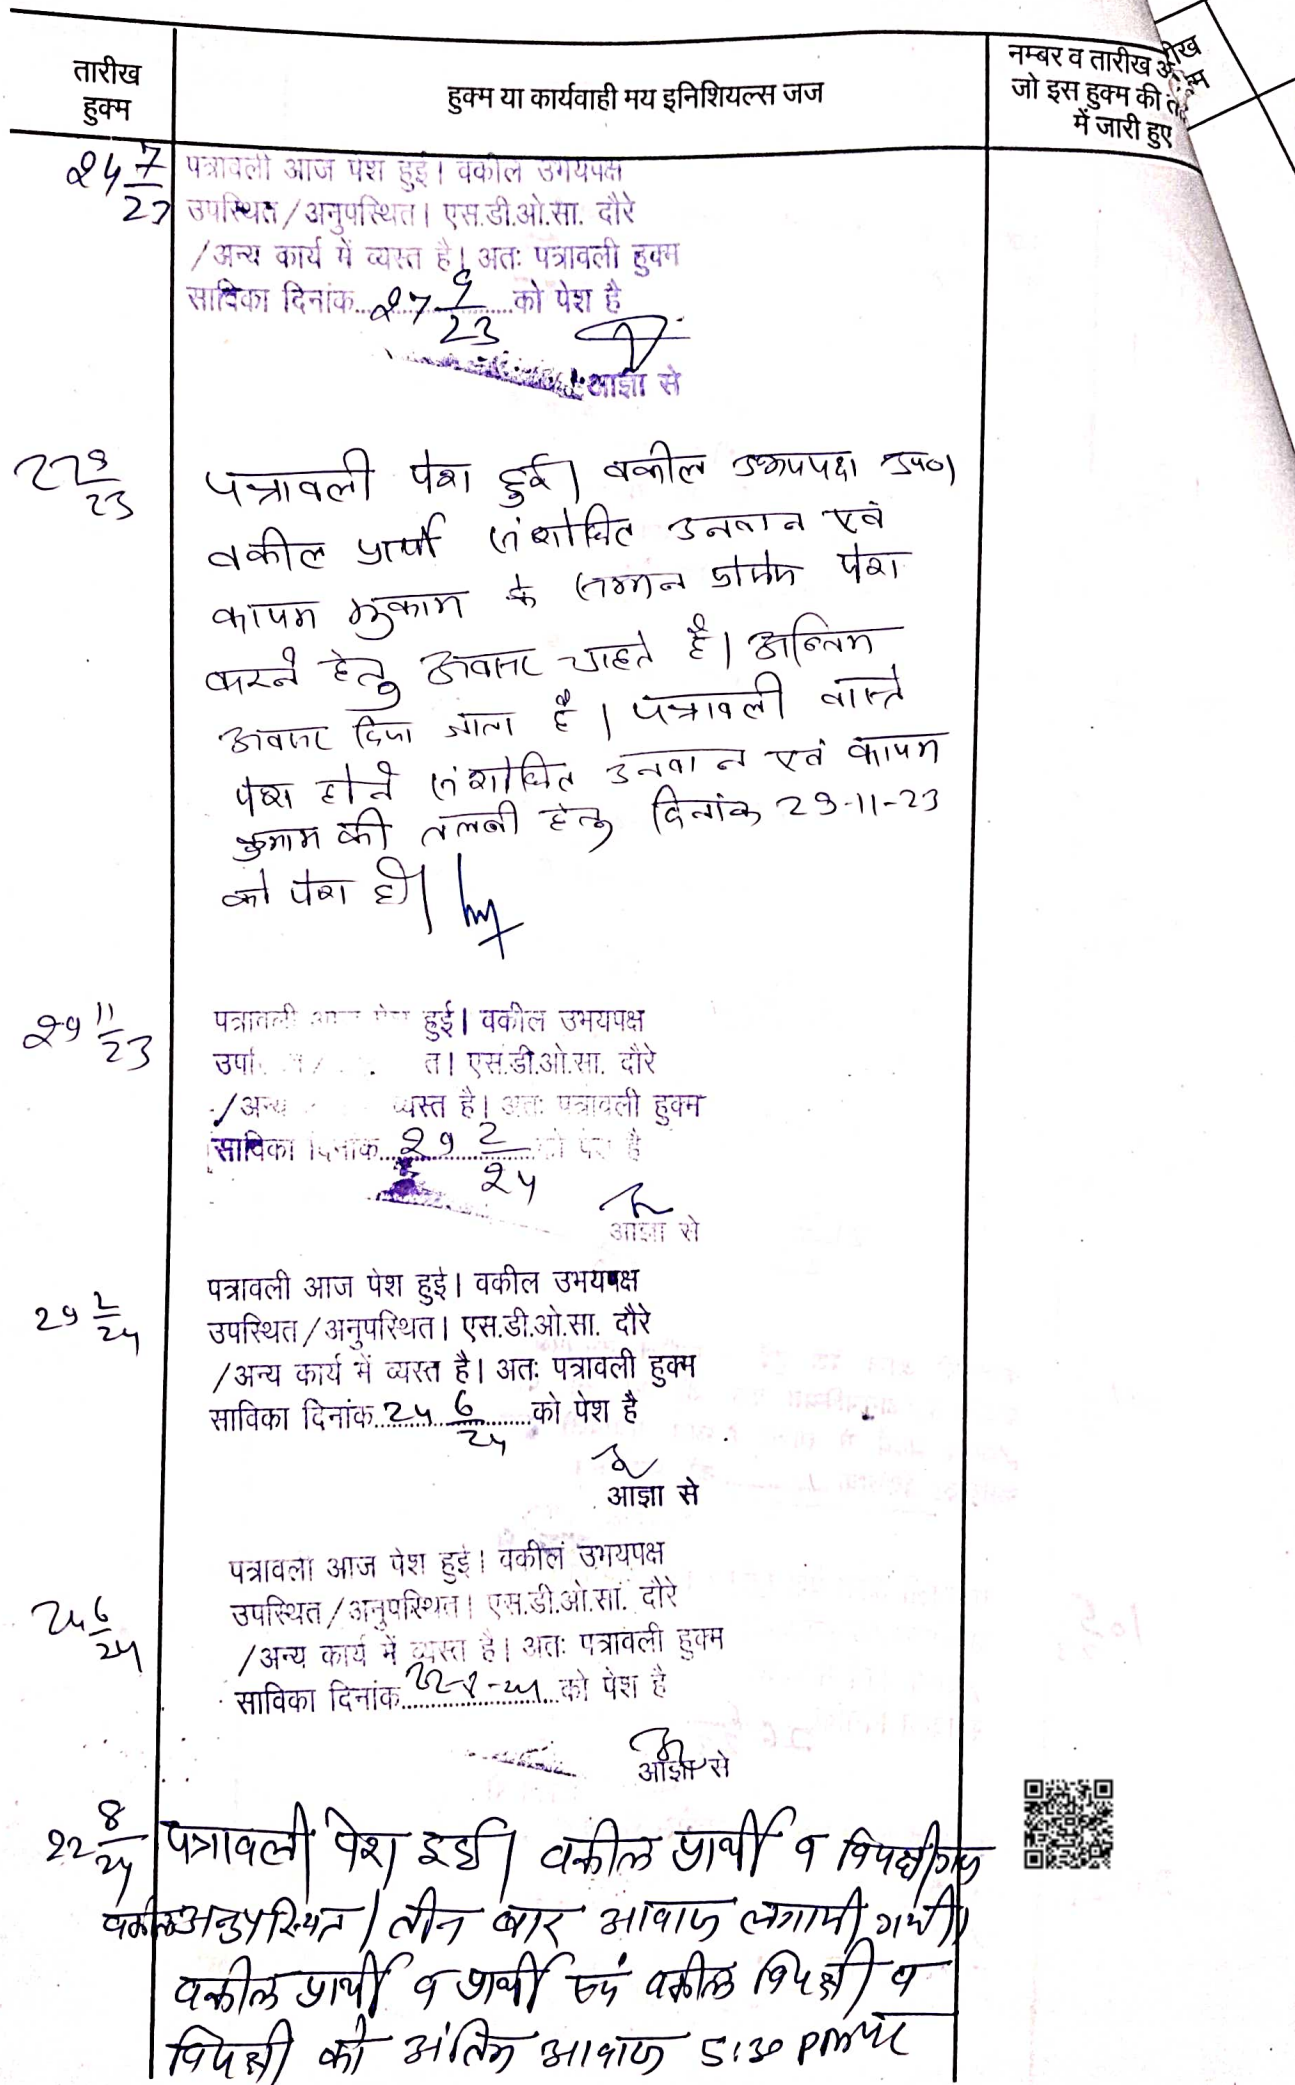 तारीख
हुक्म
हुक्म या कार्यवाही मय इनिशियल्स जज
नम्बर व तारीख
जो इस हुक्म की
में जारी हुए
24 7/23
पत्रावली आज पेश हुई। वकील उभयपक्ष
उपस्थित/अनुपस्थित। एस.डी.ओ.सा. दौरे
/अन्य कार्य में व्यस्त है। अतः पत्रावली हुक्म
साविका दिनांक...27 9/23...को पेश है
आज्ञा से
27 9/23
पत्रावली पेश हुई। वकील उभयपक्ष उप०।
वकील प्रार्थी संशोधित उनवान एवं
कायम मुकाम के सम्मन फॉर्म पेश
करने हेतु अवसर चाहते है। अन्तिम
अवसर दिया जाता है। पत्रावली वास्ते
पेश होने संशोधित उनवान एवं कायम
मुकाम की तलबी हेतु दिनांक 29-11-23
को पेश हो।
29 11/23
पत्रावली आज पेश हुई। वकील उभयपक्ष
त। एस.डी.ओ.सा. दौरे
/अन्य व्यस्त है। अतः पत्रावली हुक्म
साविका दिनांक...29 2/24...को पेश है
आज्ञा से
29 2/24
पत्रावली आज पेश हुई। वकील उभयपक्ष
उपस्थित/अनुपस्थित। एस.डी.ओ.सा. दौरे
/अन्य कार्य में व्यस्त है। अतः पत्रावली हुक्म
साविका दिनांक...24 6/24...को पेश है
आज्ञा से
24 6/24
पत्रावली आज पेश हुई। वकील उभयपक्ष
उपस्थित/अनुपस्थित। एस.डी.ओ.सा. दौरे
/अन्य कार्य में व्यस्त है। अतः पत्रावली हुक्म
साविका दिनांक...22-8-24...को पेश है
आज्ञा से
22 8/24
पत्रावली पेश हुई। वकील प्रार्थी व विपक्षीगण
वकील अनुपस्थित। तीन बार आवाज लगायी गयी।
वकील प्रार्थी व प्रार्थी एवं वकील विपक्षी व
विपक्षी को अंतिम आवाज 5:30 PM पर